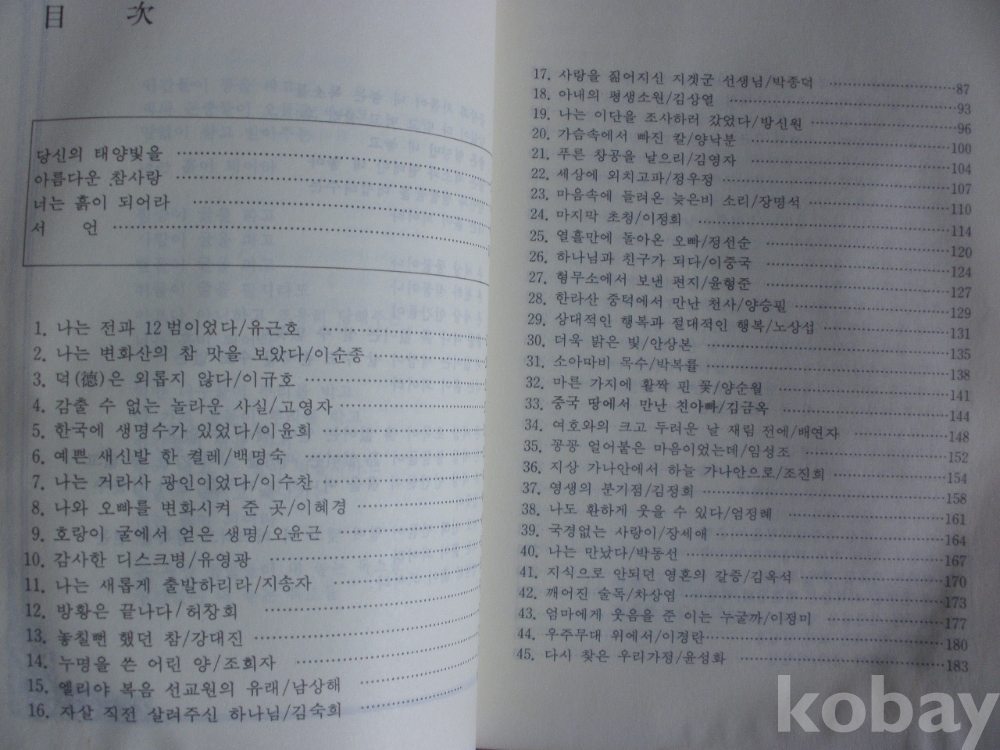 目 次
당신의 태양빛을
아름다운 참사랑
너는 흙이 되어라
서 언
1. 나는 전과 12범이었다/유근호
2. 나는 변화산의 참 맛을 보았다/이순종
3. 덕(德)은 외롭지 않다/이규호
4. 감출 수 없는 놀라운 사실/고영자
5. 한국에 생명수가 있었다/이윤희
6. 예쁜 새신발 한 켤레/백명숙
7. 나는 거라사 광인이었다/이수찬
8. 나와 오빠를 변화시켜 준 곳/이혜경
9. 호랑이 굴에서 얻은 생명/오윤근
10. 감사한 디스크병/유영광
11. 나는 새롭게 출발하리라/지송자
12. 방황은 끝나다/허창회
13. 놓칠뻔 했던 참/강대진
14. 누명을 쓴 어린 양/조회자
15. 엘리야 복음 선교원의 유래/남상해
16. 자살 직전 살려주신 하나님/김숙희
17. 사랑을 짊어지신 지겟군 선생님/박종덕 87
18. 아내의 평생소원/김상열 93
19. 나는 이단을 조사하러 갔었다/방신원 96
20. 가슴속에서 빠진 칼/양낙분 100
21. 푸른 창공을 날으리/김영자 104
22. 세상에 외치고파/정우정 107
23. 마음속에 들려온 늦은비 소리/장명석 110
24. 마지막 초청/이정희 114
25. 열흘만에 돌아온 오빠/정선순 120
26. 하나님과 친구가 되다/이중국 124
27. 형무소에서 보낸 편지/윤형준 127
28. 한라산 중턱에서 만난 천사/양승필 129
29. 상대적인 행복과 절대적인 행복/노상섭 131
30. 더욱 밝은 빛/안상본 135
31. 소아마비 목수/박복률 138
32. 마른 가지에 활짝 핀 꽃/양순월 141
33. 중국 땅에서 만난 천아빠/김금옥 144
34. 여호와의 크고 두려운 날 재림 전에/배연자 148
35. 꽁꽁 얼어붙은 마음이었는데/임성조 152
36. 지상 가나안에서 하늘 가나안으로/조진희 154
37. 영생의 분기점/김정희 158
38. 나도 환하게 웃을 수 있다/엄정례 161
39. 국경없는 사랑이/장세애 164
40. 나는 만났다/박동선 167
41. 지식으로 안되던 영혼의 갈증/김옥석 170
42. 깨어진 술독/차상엽 173
43. 엄마에게 웃음을 준 이는 누굴까/이정미 177
44. 우주무대 위에서/이경란 180
45. 다시 찾은 우리가정/윤성화 183
kobay